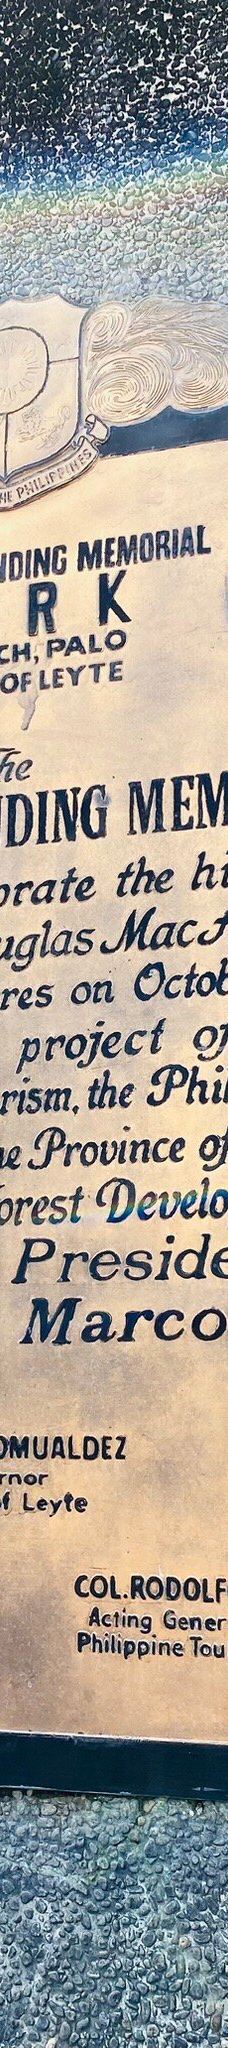 HE PHILIPPINES
NDING MEMORIAL
R K
CH, PALO
OF LEYTE
The
DING MEM
orate the hi
uglas MacA
res on Octob
project of
rism, the Phil
he Province of
orest Develo
Preside
Marco
OMUALDEZ
rnor
of Leyte
COL. RODOLF
Acting Gener
Philippine Tou